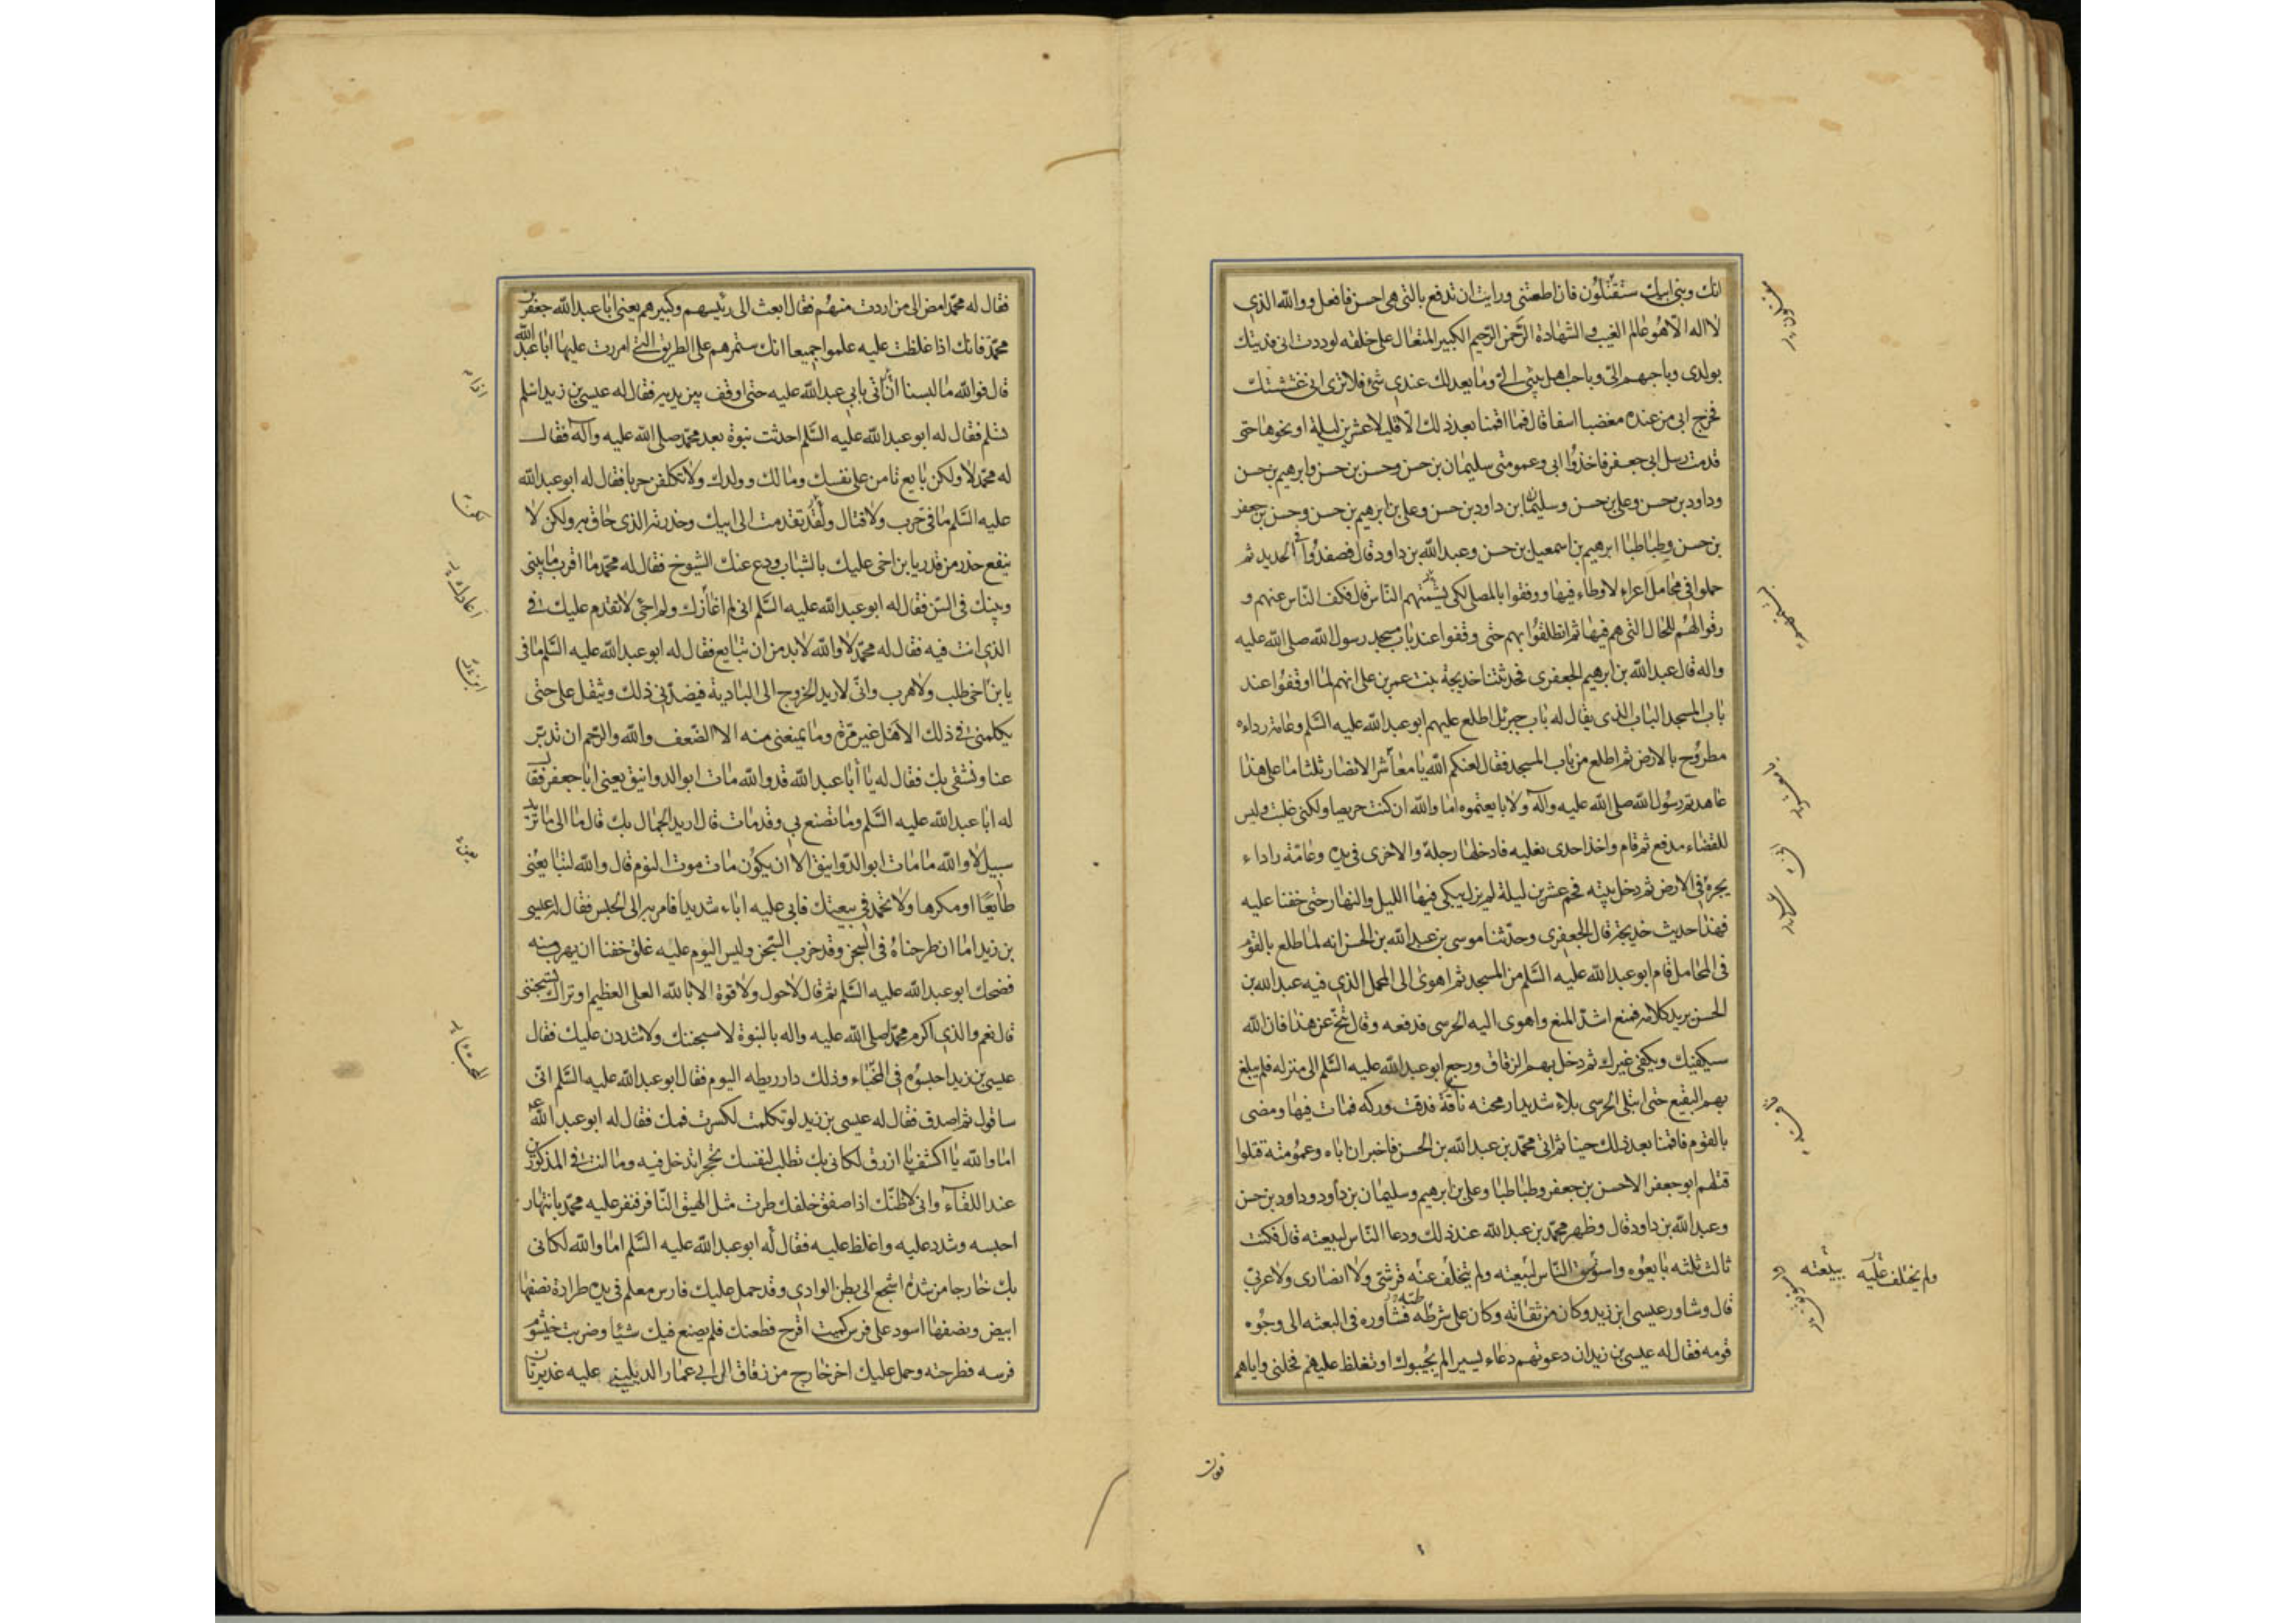 انك وبنى ابيك ستقتلون فان اطعتنى ورايت ان تدفع بالتى هى احسن فافعل ووالله الذى
لا اله الا هو عالم الغيب والشهادة الرحمن الرحيم الكبير المتعال على خلقه لوددت انى فديتك
بولدى وباحبهم الىّ وباحب اهل بيتى الىّ وما يعدلك عندى شئ فلا ترى انى غششتك
فخرج ابى من عنده مغضبا اسفا قال فما اقمنا بعد ذلك الا قليلا عشرين ليلة او نحوها حتى
قدمت رسل ابى جعفر فاخذوا ابى وعمومتى سليمان بن حسن وحسن بن حسن وابرهيم بن حسن
وداود بن حسن وعلى بن حسن وسليمان بن داود بن حسن وعلى بن ابرهيم بن حسن وحسن بن جعفر
بن حسن وطباطبا ابرهيم بن اسمعيل بن حسن وعبد الله بن داود قال فصفدوا فى الحديد ثم
حملوا فى محامل اعراء لا وطاء فيها ووقفوا بالمصلى لكى يشتمهم الناس قال فكف الناس عنهم و
رقوا لهم للحال التى هم فيها ثم انطلقوا بهم حتى وقفوا عند باب مسجد رسول الله صلى الله عليه
واله قال عبد الله بن ابرهيم الجعفرى فحدثتنا خديجة بنت عمر بن على انهم لما اوقفوا عند
باب المسجد الباب الذى يقال له باب جبرئل اطلع عليهم ابو عبد الله عليه السلم وعامة رداءه
مطروح بالارض ثم اطلع من باب المسجد فقال لعنكم الله يا معاشر الانصار ثلثا ما على هذا
عاهدتم رسول الله صلى الله عليه وآله ولا بايعتموه اما والله ان كنت حريصا ولكنى غلبت وليس
للقضاء مدفع ثم قام واخذ احدى نعليه فادخلها رجله والاخرى فى يده وعامة رداء
يجره فى الارض ثم دخل بيته فحم عشرين ليلة لم يزل يبكى فيها الليل والنهار حتى خفنا عليه
فهذا حديث خديجة قال الجعفرى وحدثنا موسى بن عبد الله بن الحسن انه لما طلع بالقوم
فى المحامل قام ابو عبد الله عليه السلم من المسجد ثم اهوى الى المحمل الذى فيه عبد الله بن
الحسن يريد كلامه فمنع اشد المنع واهوى اليه الحرسى فدفعه وقال تنح عن هذا فان الله
سيكفيك ويكفى غيرك ثم دخل بهم الزقاق ورجع ابو عبد الله عليه السلم الى منزله فلم يبلغ
بهم البقيع حتى ابتلى الحرسى بلاء شديدا رمحته ناقة فدقت وركه فمات فيها ومضى
بالقوم فاقمنا بعد ذلك حينا ثم اتى محمد بن عبد الله بن الحسن فاخبر ان اباه وعمومته قتلوا
قتلهم ابو جعفر الا حسن بن جعفر وطباطبا وعلى بن ابرهيم وسليمان بن داود وداود بن حسن
وعبد الله بن داود قال وظهر محمد بن عبد الله عند ذلك ودعا الناس لبيعته قال فكنت
ثالث ثلثه بايعوه واستوسق الناس لبيعته ولم يتخلف عنه قرشى ولا انصارى ولا عربى
قال وشاور عيسى ابن زيد وكان من ثقاته وكان على شرطه فشاوره فى البعثه الى وجوه
قومه فقال له عيسى بن زيد ان دعوتهم دعاء يسيرا لم يجيبوك او تغلظ عليهم فخلنى واياهم
ولم يختلف عليه ببيعته
فقال
فقال له محمد امض الى من اردت منهم فقال ابعث الى رئيسهم وكبيرهم يعنى ابا عبد الله جعفر بن
محمد فانك اذا غلظت عليه علموا جميعا انك ستمرهم على الطريق التى امررت عليها ابا عبد الله
قال فوالله ما لبسنا ان اتى بابى عبد الله عليه حتى اوقف بين يديه فقال له عيسى بن زيد اسلم
تسلم فقال له ابو عبد الله عليه السلم احدثت نبوة بعد محمد صلى الله عليه وآله فقال
له محمد لا ولكن بايع تامن على نفسك ومالك وولدك ولا تكلفن حربا فقال له ابو عبد الله
عليه السلم ما فىّ حرب ولا قتال ولقد تقدمت الى ابيك وحذرته الذى حاق به ولكن لا
ينفع حذر من قدر يا بن اخى عليك بالشباب ودع عنك الشيوخ فقال له محمد ما اقرب ما بينى
وبينك فى السن فقال له ابو عبد الله عليه السلم انى لم اعازك ولم اجئ لاتقدم عليك فى
الذى انت فيه فقال له محمد لا والله لا بد من ان تبايع فقال له ابو عبد الله عليه السلم ما فى
يا بن اخى طلب ولا هرب وانى لاريد الخروج الى البادية فيصدنى ذلك ويثقل على حتى
يكلمنى فى ذلك الاهل غير مرة وما يمنعنى منه الا الضعف والله والرحم ان تدبر
عنا ونشقى بك فقال له يا أبا عبد الله قد والله مات ابو الدوانيق يعنى ابا جعفر فقال
له ابا عبد الله عليه السلم وما تصنع بى وقد مات قال اريد الجمال بك قال ما الى ما تريد
سبيل لا والله ما مات ابو الدوانيق الا ان يكون مات موت النوم قال والله لتبايعنى
طايعا او مكرها ولا تحمد فى بيعتك فابى عليه اباء شديدا فامر به الى الحبس فقال له عيسى
بن زيد اما ان طرحناه فى السجن وقد خرب السجن وليس اليوم عليه غلق خفنا ان يهرب منه
فضحك ابو عبد الله عليه السلم ثم قال لا حول ولا قوة الا بالله العلى العظيم اوتراك تسجننى
قال نعم والذى اكرم محمدا صلى الله عليه واله بالنبوة لاسجننك ولاشددن عليك فقال
عيسى بن زيد احبسوه فى المخباء وذلك دار ريطه اليوم فقال ابو عبد الله عليه السلم انى
ساقول ثم اصدق فقال له عيسى بن زيد لو تكلمت لكسرت فمك فقال له ابو عبد الله
اما والله يا اكشف يا ازرق لكانى بك تطلب لنفسك جحرا تدخل فيه وما انت فى المذكورين
عند اللقاء وانى لاظنك اذا صفق خلفك طرت مثل الهيق النافر فنفر عليه محمد بانتهار
احبسه وشدد عليه واغلظ عليه فقال له ابو عبد الله عليه السلم اما والله لكانى
بك خارجا من سدة اشجع الى بطن الوادى وقد حمل عليك فارس معلم فى يده طرادة نصفها
ابيض ونصفها اسود على فرس كميت اقرح فطعنك فلم يصنع فيك شيئا وضربت خيشوم
فرسه فطرحته وحمل عليك اخر خارج من زقاق ال ابى عمار الديليين عليه غديرتان